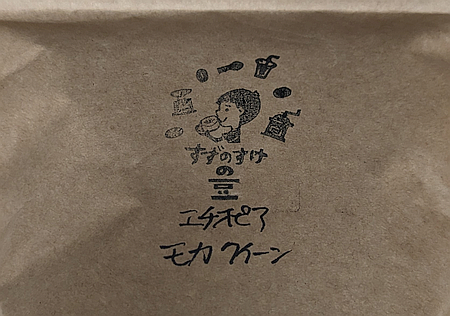 すずのすけ
の
豆
エチオピア
モカクイーン